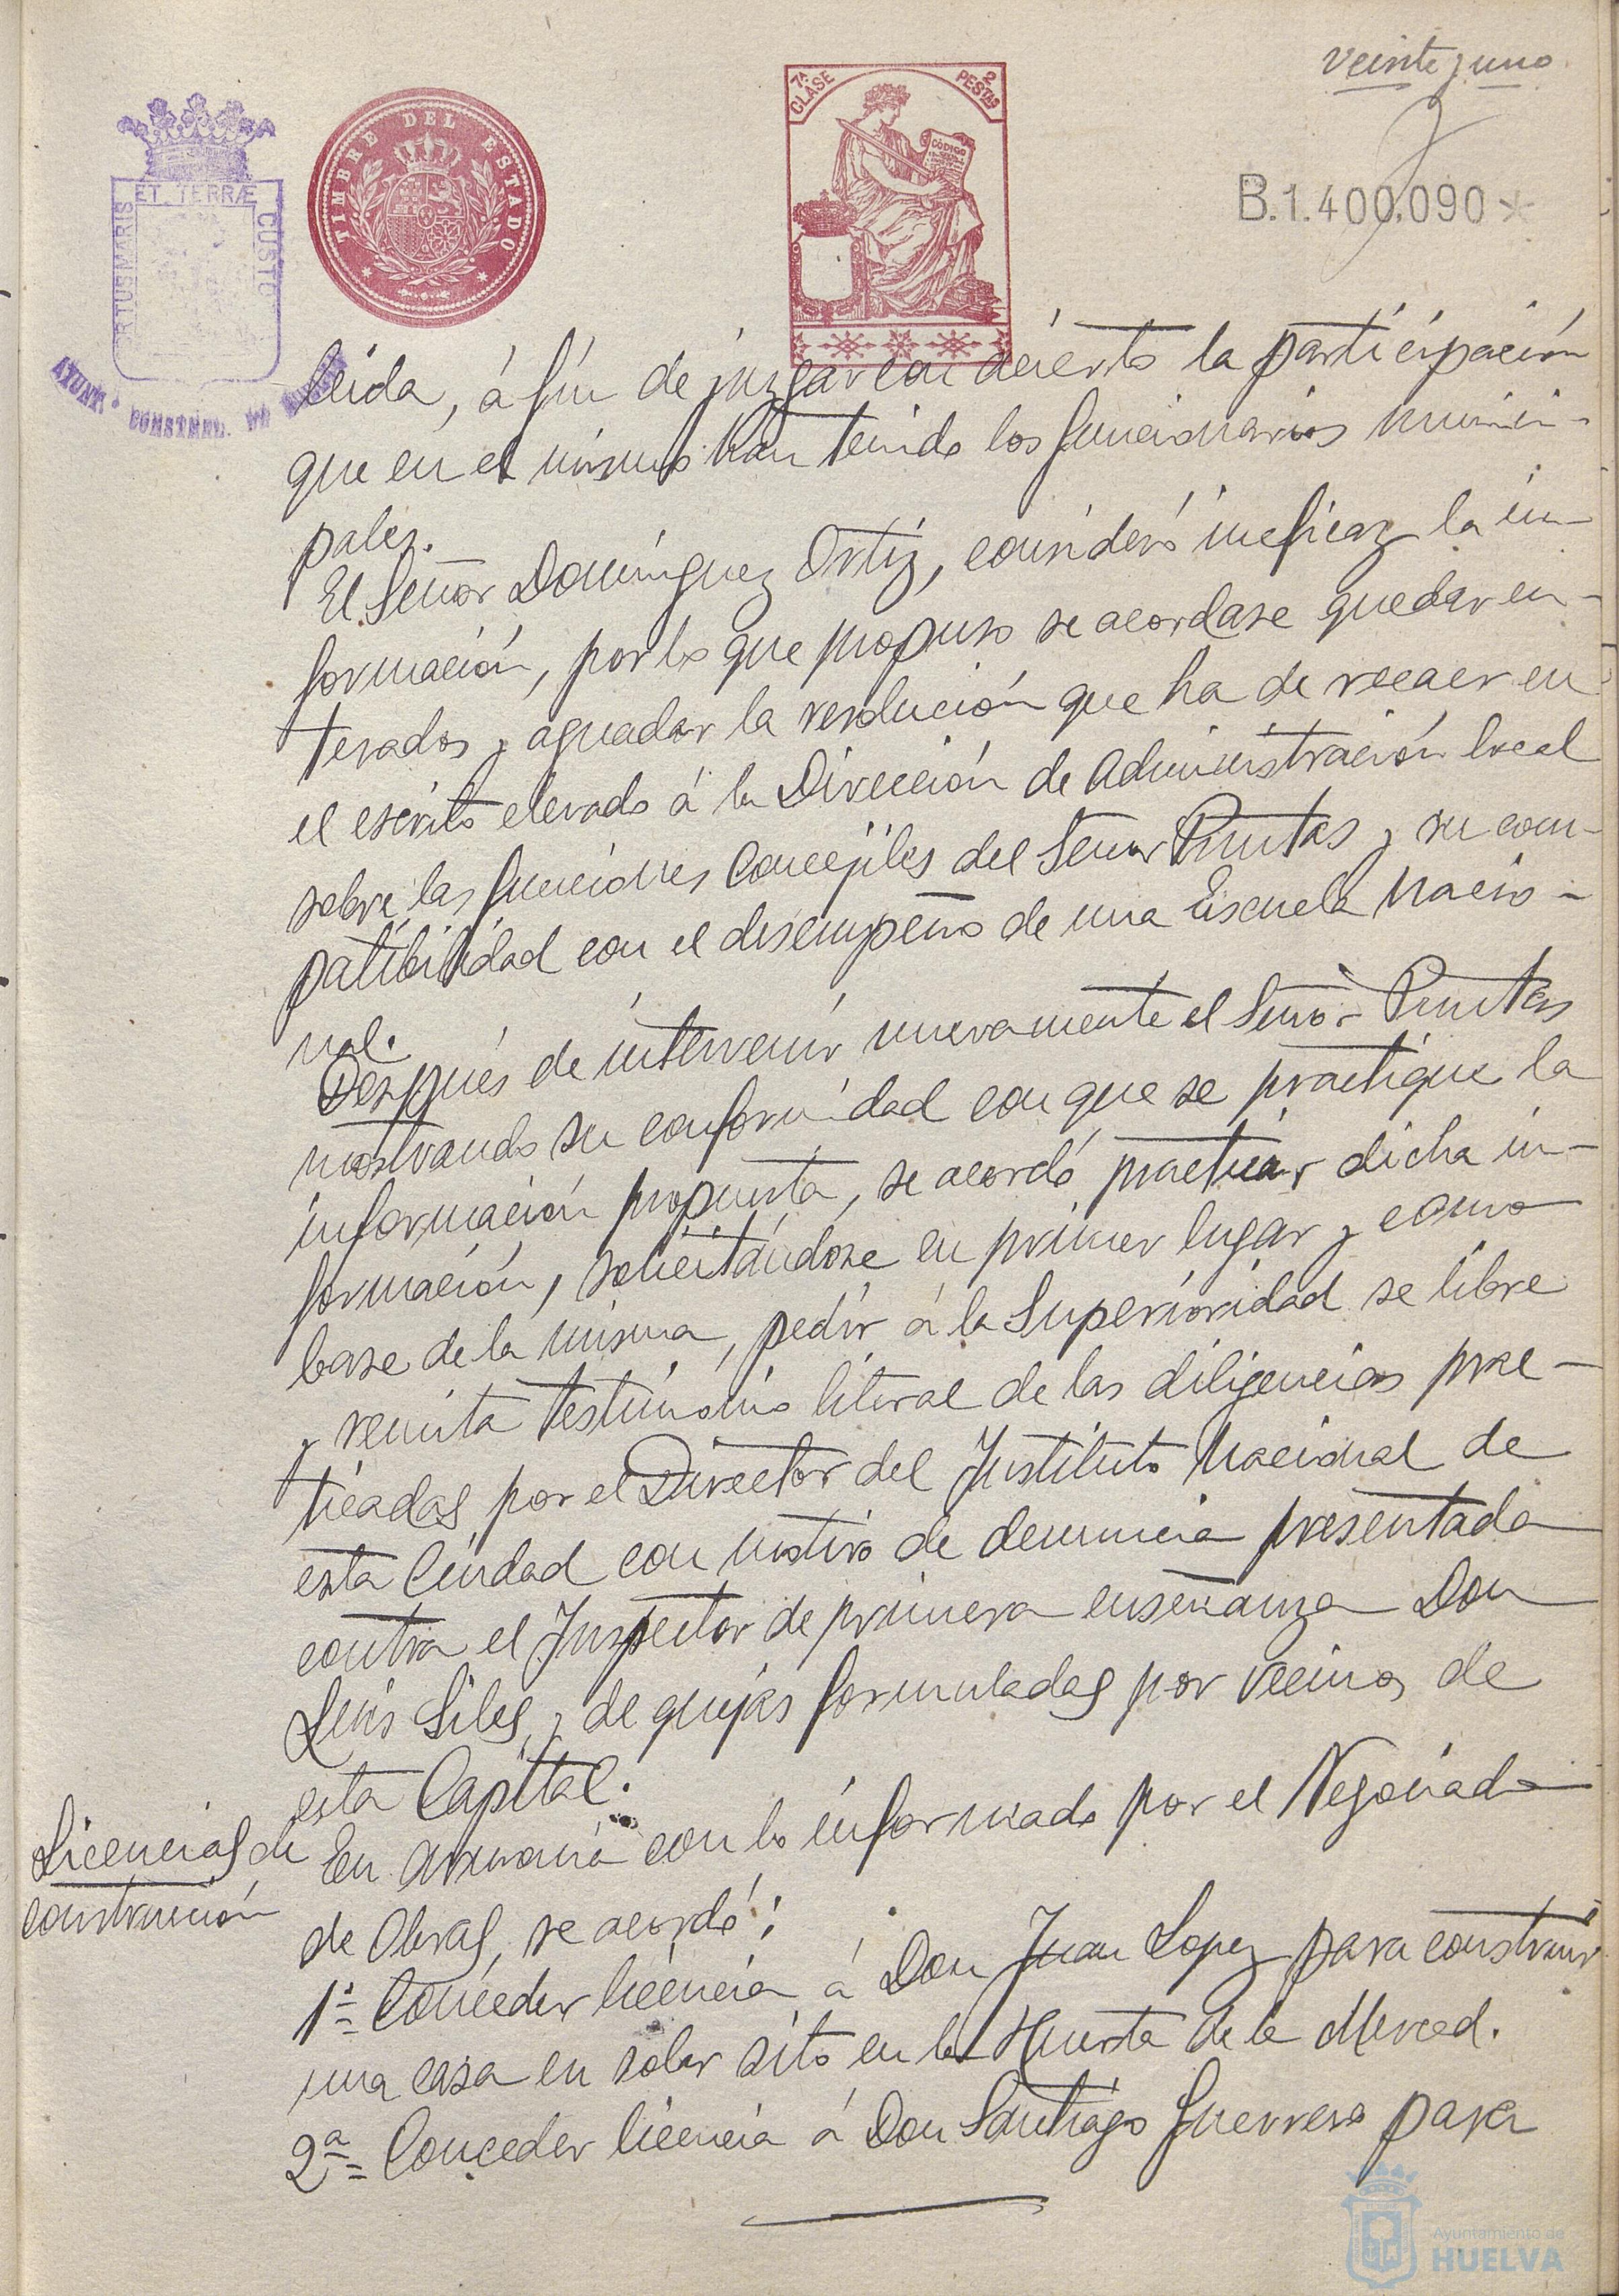 veinte y uno
7ª CLASE 2 PESTAS
CÓDIGO
TIMBRE DEL ESTADO
PORTUS MARIS ET TERRÆ CUSTO
AYUNT.º CONSTNAL. DE HUELVA
B.1.400,090 *
leida, á fin de juzgar con acierto la participación
que en el mismo han tenido los funcionarios munici-
pales.
El Señor Domínguez Ortiz, consideró ineficaz la in-
formación, por lo que propuso se acordase quedar en-
terados y aguadar la resolución que ha de recaer en
el escrito elevado á la Dirección de Administración local
sobre las funciones Concejiles del Señor Puntas y su com-
patibilidad con el desempeño de una Escuela Nacio-
nal.
Después de intervenir nuevamente el Señor Puntas
mostrando su conformidad con que se practique la
información propuesta, se acordó practicar dicha in-
formación, solicitándose en primer lugar y como
base de la misma, pedir á la Superioridad se libre
y remita testimonio literal de las diligencias prac-
ticadas por el Director del Instituto Nacional de
esta Ciudad con motivo de denuncia presentada
contra el Inspector de primera enseñanza Don
Luis Siles y de quejas formuladas por vecinos de
esta Capital.
Licencias de
construcción
En armonía con lo informado por el Negociado
de Obras, se acordó:
1º= Conceder licencia á Don Juan Lopez para construir
una casa en solar sito en la Huerta de la Merced.
2ª= Conceder licencia á Don Santiago Guerrero para
Ayuntamiento de
HUELVA